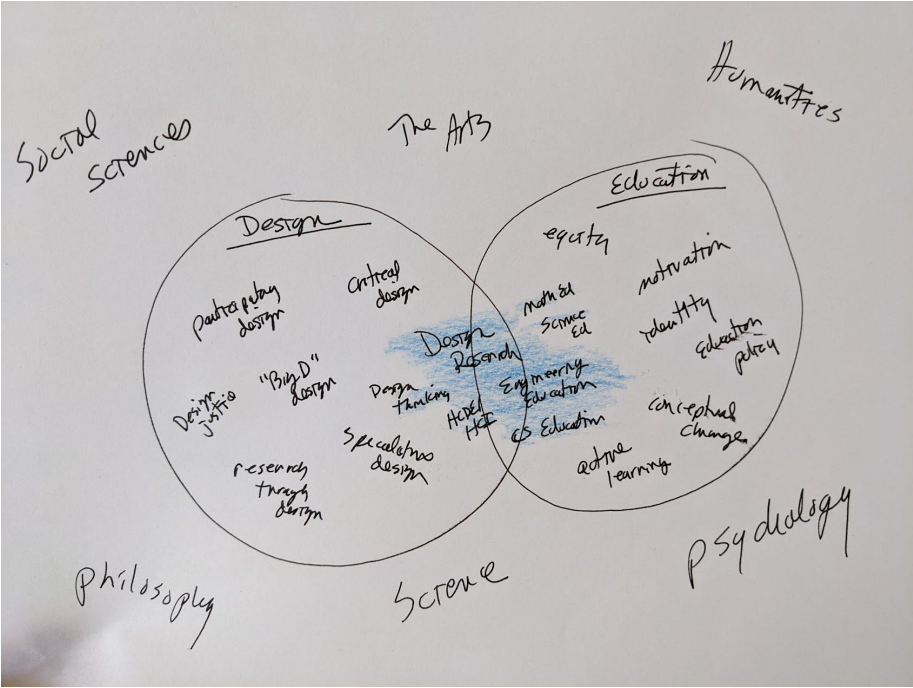 Social
Sciences
The Arts
Humanities
Design
participatory
design
critical
design
Design
justice
"Big D"
design
Design
thinking
research
through
design
Speculative
design
Design
Research
HCDE/
HCI
Education
equity
math Ed
Science
Ed
motivation
identity
Education
policy
Engineering
Education
CS Education
conceptual
change
active
learning
philosophy
Science
psychology